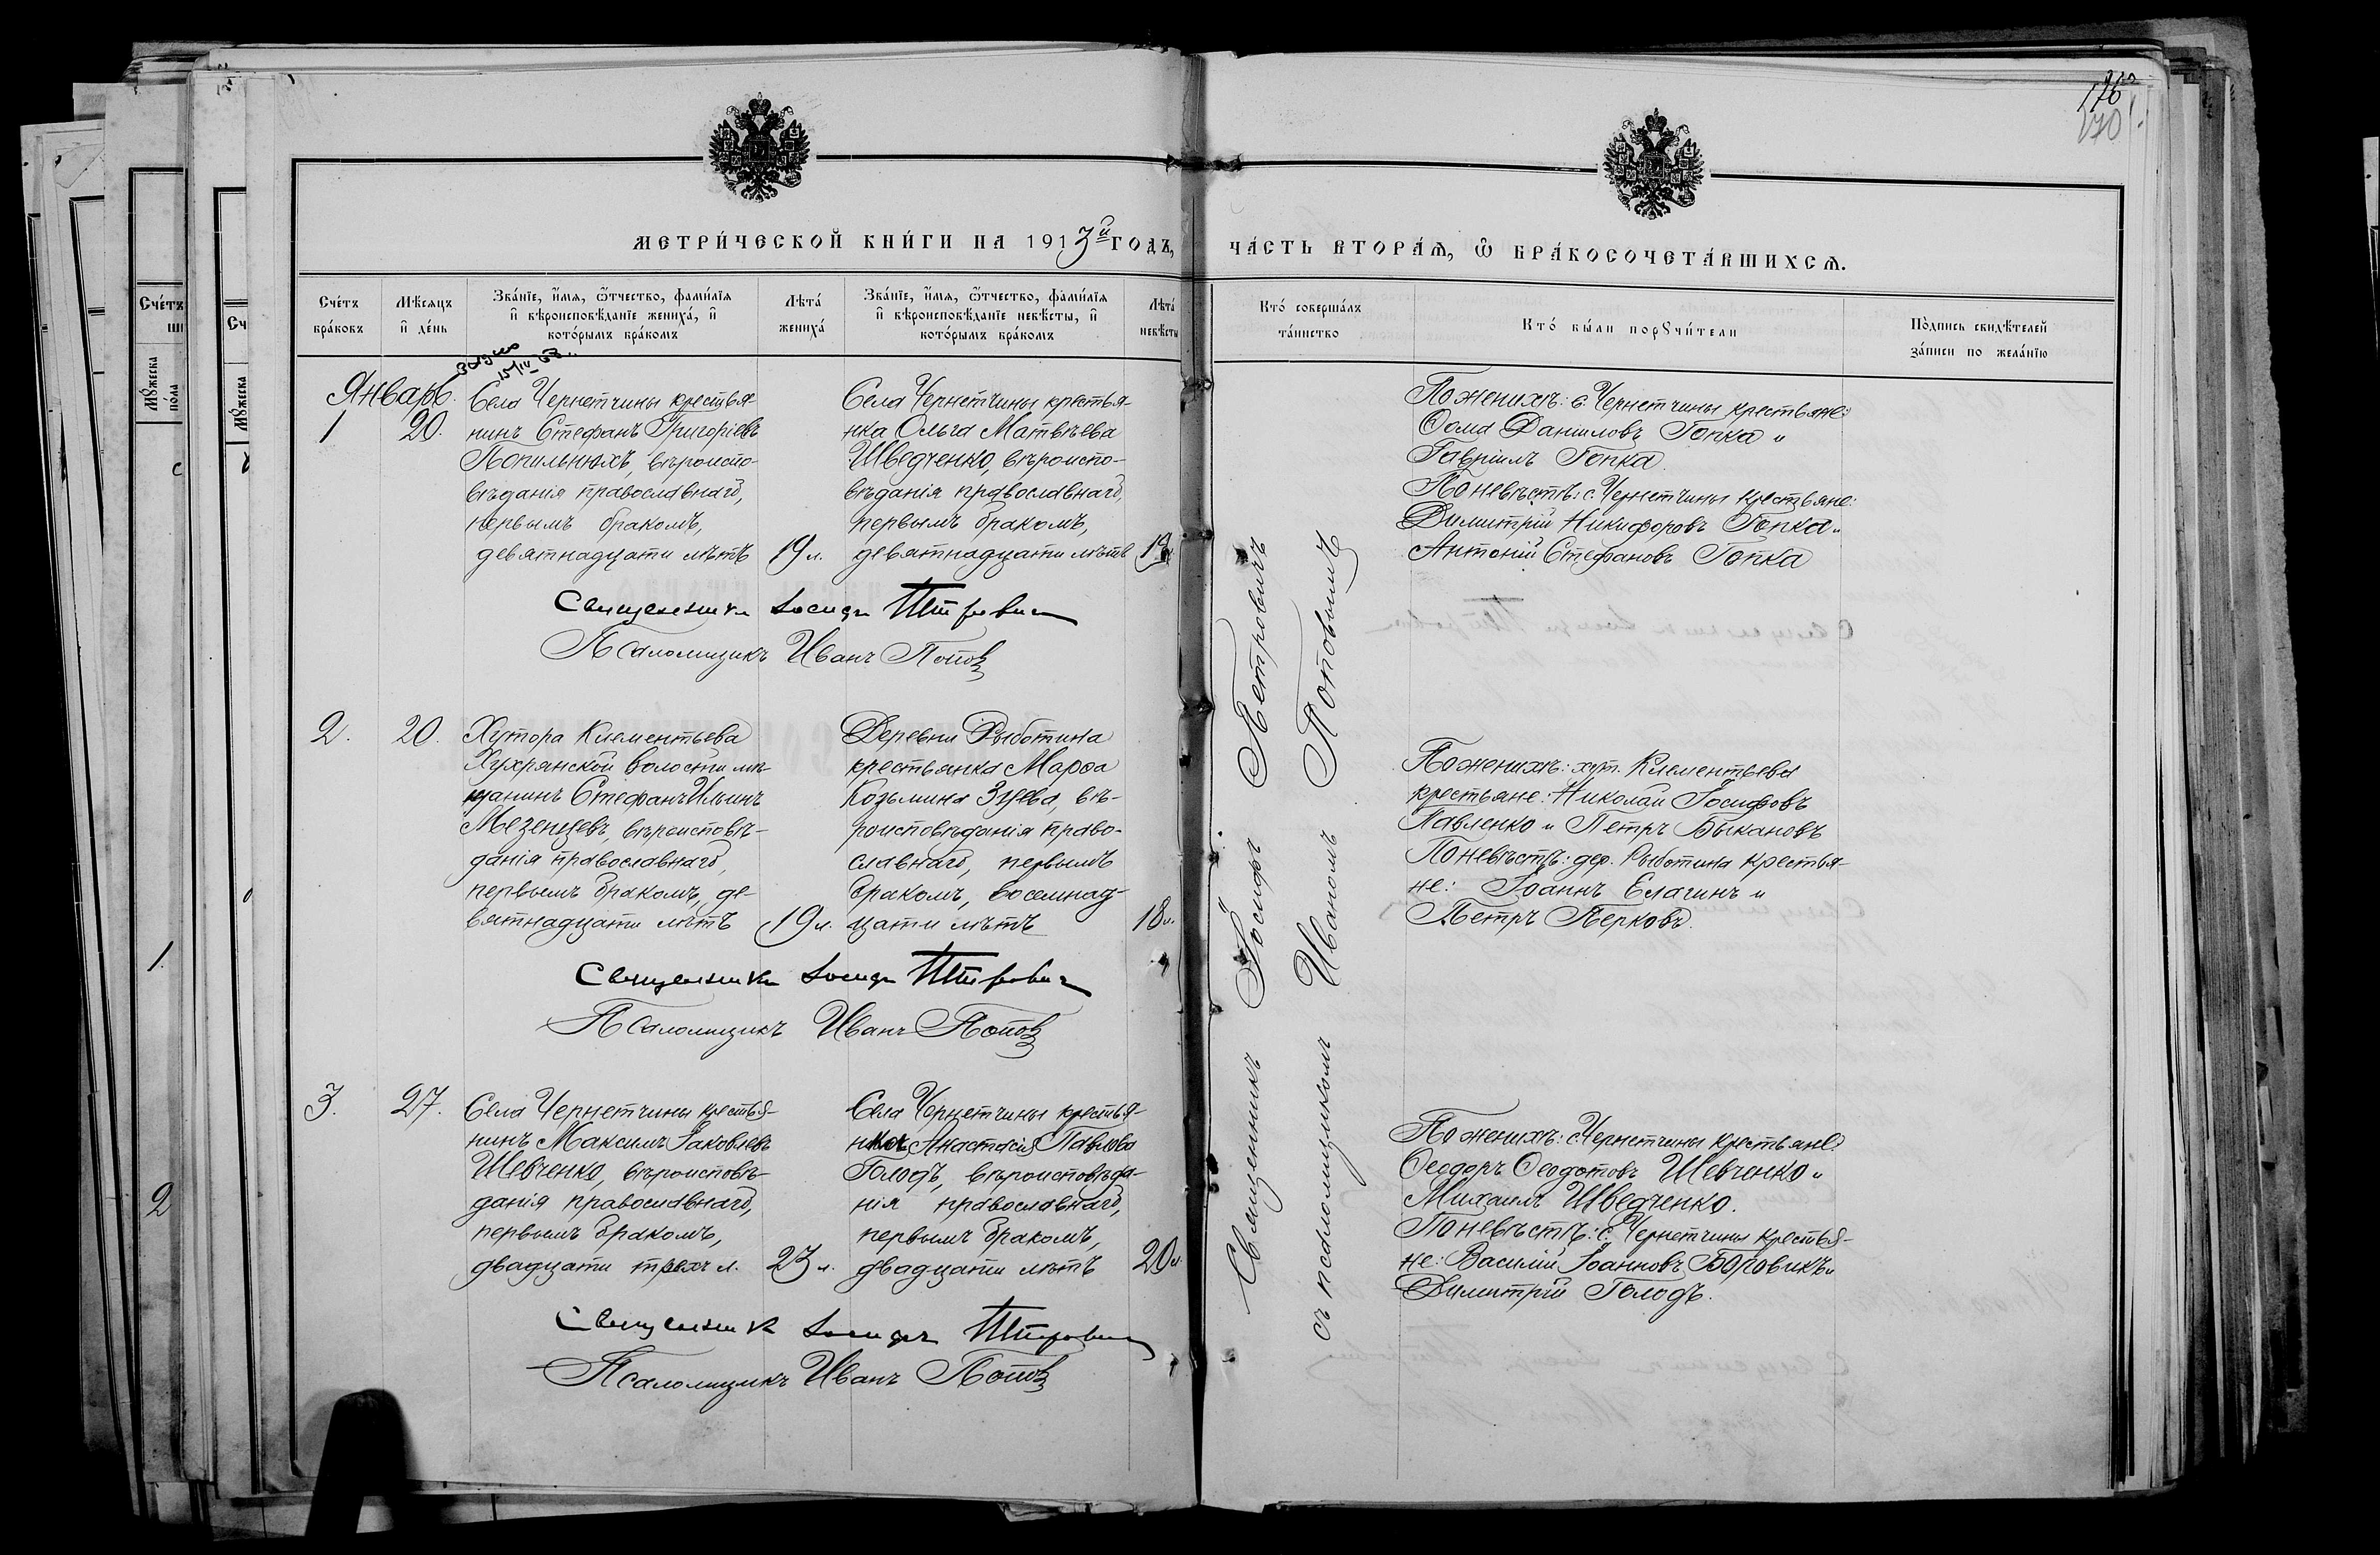 176
170
МЕТРИ́ЧЕСКОЙ КНИ́ГИ НА 1913й ГОДЪ,
ЧА́СТЬ ВТОРА́Ѧ, Ѿ БРА́КОСОЧЕТА́ВШИХСѦ.
Сче́тъ
бра́ковъ
Мѣ́сѧцъ
и҆ де́нь
Зва́нїе, и҆́мѧ, ѻ҆́тчество, фами́лїѧ
и҆ вѣ́роисповѣ́данїе жениха́, и҆
кото́рымъ бра́комъ
Лѣта́
жениха́
Зва́нїе, и҆́мѧ, ѻ҆́тчество, фами́лїѧ
и҆ вѣ́роисповѣ́данїе невѣ́сты, и҆
кото́рымъ бра́комъ
Лѣта́
невѣ́сты
Кто́ соверша́лъ
та́инство
Кто́ бы́ли порꙋчи́тели
По́дпись свидѣ́телей
за́писи по жела́нїю
Январь.
1
20.
Села Чернетчины крестья-
нинъ Стефанъ Григоріевъ
Попильнюхъ, вѣроиспо-
вѣданія православнаго,
первымъ бракомъ,
девятнадцати лѣтъ
19 л.
Села Чернетчины крестья-
нка Ольга Матвѣева
Шведченко, вѣроиспо-
вѣданія православнаго,
первымъ бракомъ,
девятнадцати лѣтъ
19
Священникъ Іосифъ Петровичъ
съ псаломщикомъ Иваномъ Поповымъ
По женихѣ: с. Чернетчины крестьяне:
Ѳома Даніиловъ Гопка и
Гавріилъ Гопка.
По невѣстѣ: с. Чернетчины крестьяне:
Димитрій Никифоровъ Гопка и
Антоній Стефановъ Гопка
Священникъ Іосифъ Петровичъ
Псаломщикъ Иванъ Поповъ
2.
20.
Хутора Клементьева
Хухрянской волости мѣ-
щанинъ Стефанъ Ильинъ
Мезенцевъ, вѣроисповѣ-
данія православнаго,
первымъ бракомъ, де-
вятнадцати лѣтъ
19 л.
Деревни Рыботина
крестьянка Марѳа
Козьмина Зуева, вѣ-
роисповѣданія право-
славнаго, первымъ
бракомъ, восемнад-
цати лѣтъ
18 л.
По женихѣ: хут. Клементьева
крестьяне: Николай Іосифовъ
Павленко и Петръ Быкановъ
По невѣстѣ: дер. Рыботина крестья-
не: Іоаннъ Елагинъ и
Петръ Перковъ.
Священникъ Іосифъ Петровичъ
Псаломщикъ Иванъ Поповъ
3.
27.
Села Чернетчины крестья-
нинъ Максимъ Іаковлевъ
Шевченко, вѣроисповѣ-
данія православнаго,
первымъ бракомъ,
двадцати трехъ л.
23 л.
Села Чернетчины крестья-
нка Анастасія Павлова
Голодъ, вѣроисповѣда-
нія православнаго,
первымъ бракомъ,
двадцати лѣтъ
20 л.
По женихѣ: с. Чернетчины крестьяне:
Ѳеодоръ Ѳеодотовъ Шевченко и
Михаилъ Шведченко.
По невѣстѣ: с. Чернетчины крестья-
не: Василій Іоанновъ Боровикъ и
Димитрій Голодъ.
Священникъ Іосифъ Петровичъ
Псаломщикъ Иванъ Поповъ
Сче́тъ
Мꙋ́жеска
по́ла
1.
2
Сч
Мꙋ́жеска